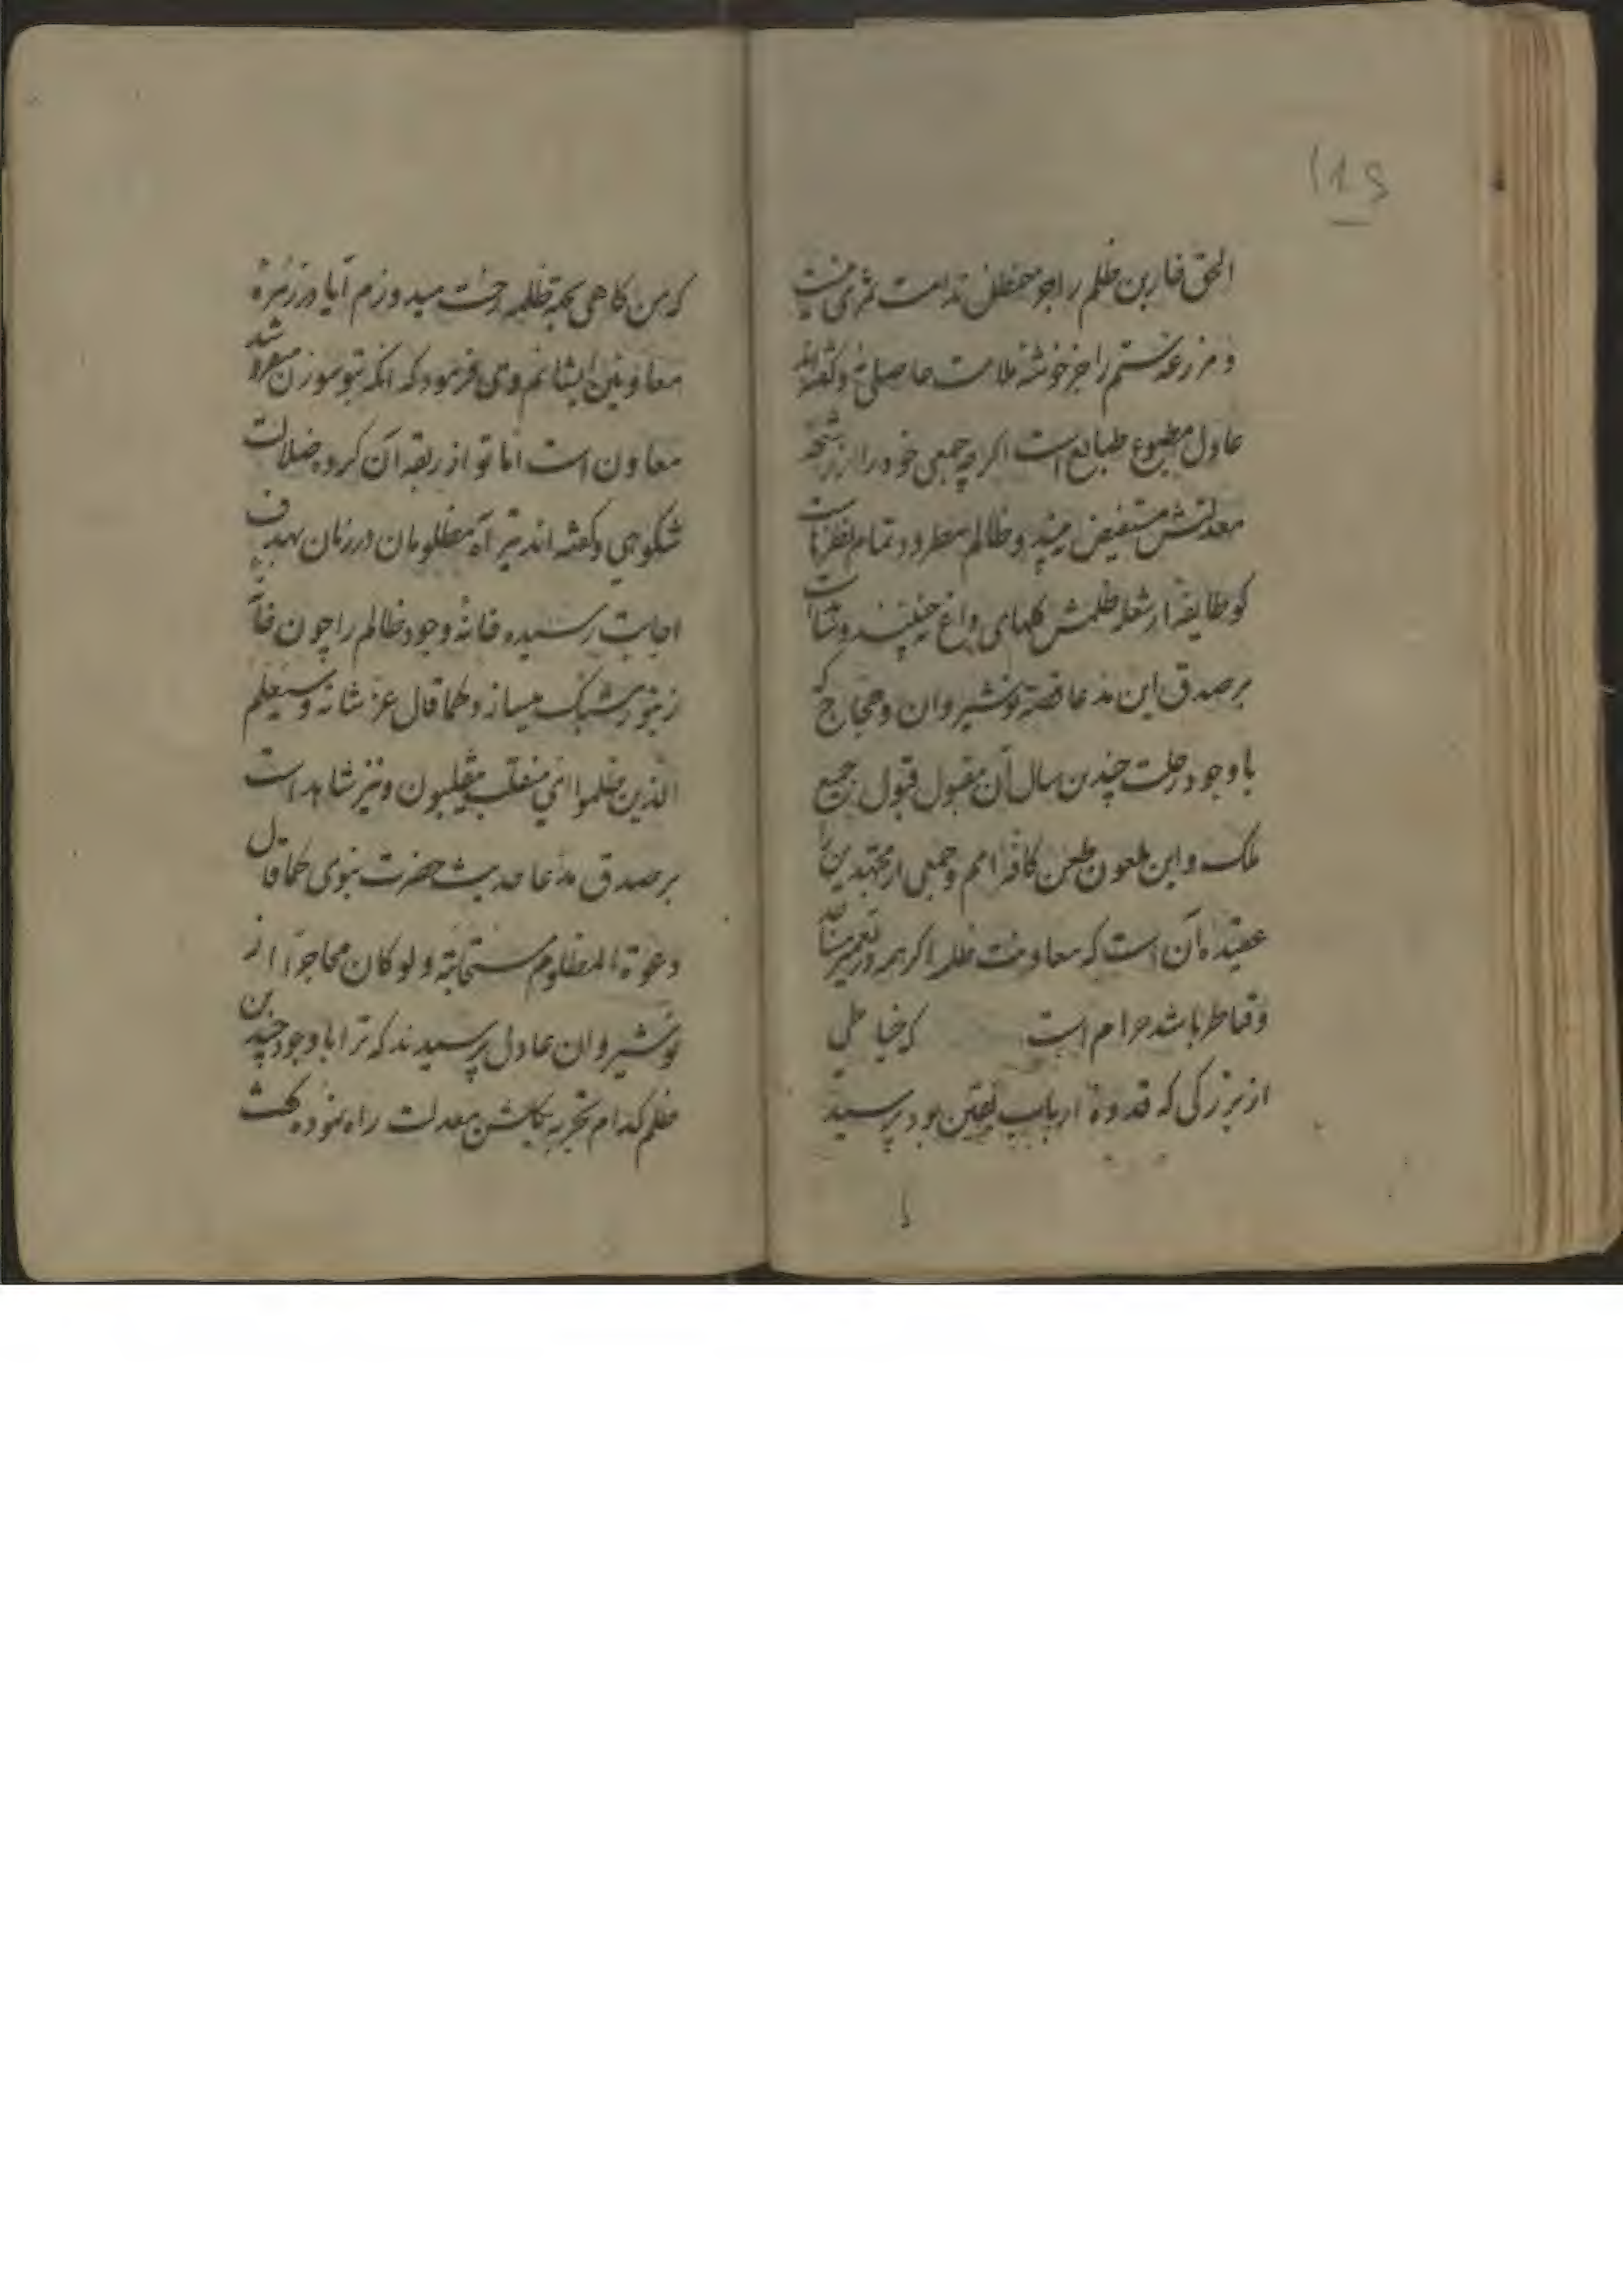 الحق خاربن ظلم را جز حنظل ندامت ثمری نیست
و مزرعه ستم را جز خوشه ملامت حاصلی نه و گفته‌اند
عادل مطبوع طبایع است اگرچه جمعی خود را از رشحه
معدلتش مستفیض نبیند و ظالم مطرود تمام نظرهاست
کو طایفه از شعله ظلمش گلهای داغ نچینند و شاهد است
بر صدق این مدعا قصه نوشیروان و حجاج که
با وجود رحلت چندین سال آن مقبول قبول جمیع
ملک و این ملعون طعن کافه امم و جمعی از مجتهدین را
عقیده آن است که معاونت ظلمه اگر همه در تعمیر مساجد
و قناطر باشد حرام است که خیاطی
از بزرگی که قدوة ارباب یقین بود پرسید
که من گاهی بجهة ظلمه رخت میدوزم آیا در زمره
معاونین ایشانم وی فرمود که آنکه بتو سوزن میفروشد
معاون است اما تو از ربقه آن گروه ضلالت
شکوهی و گفته‌اند تیر آه مظلومان در زمان بهدف
اجابت رسیده خانه وجود ظالم را چون خانه
زنبور مشبک میسازد کما قال عز شانه و سیعلم
الذین ظلموا ای منقلب ینقلبون و نیز شاهد است
بر صدق مدعا حدیث حضرت نبوی کما قال
دعوة المظلوم مستجابة ولو کان فاجرا از
نوشیروان عادل پرسیدند که ترا با وجود چندین
ظلم کدام تجربه بگلشن معدلت راه نموده گفت